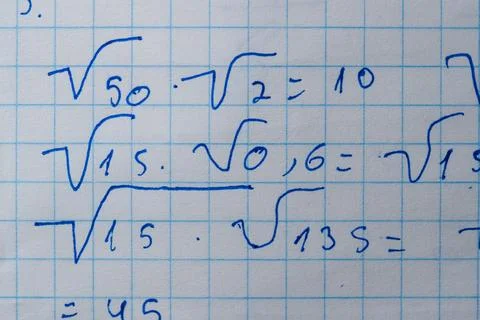 3.
√50 · √2 = 10 √
√15 · √0,6 = √15
√15 · √135 =
= 45